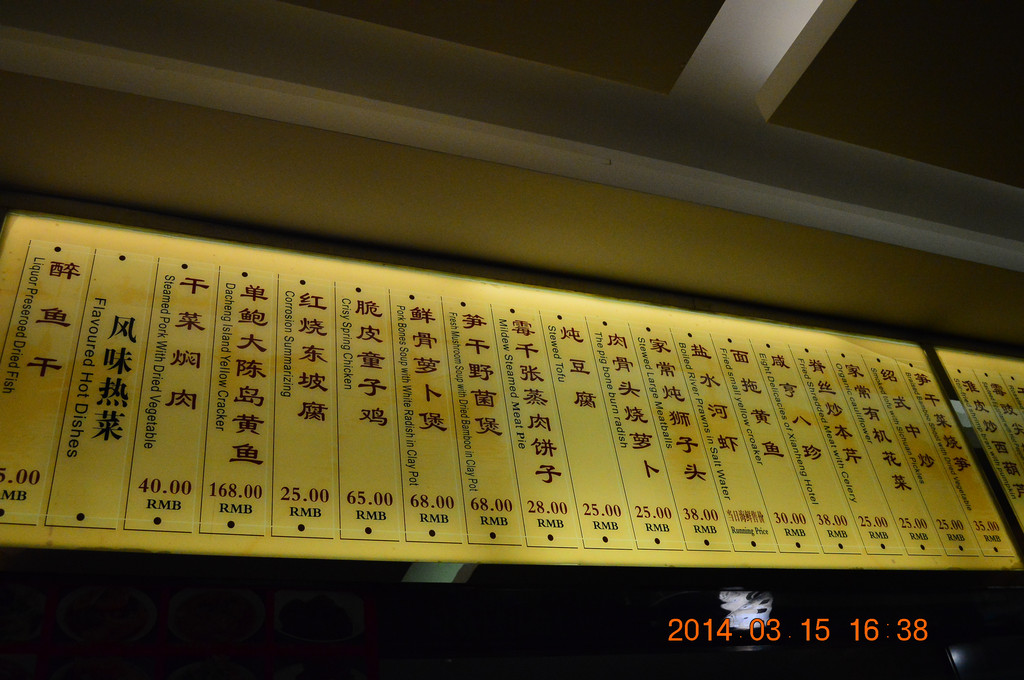 醉鱼干
Liquor Preserced Dried Fish
5.00
RMB
风味热菜
Flavoured Hot Dishes
干菜焖肉
Steamed Pork With Dried Vegetable
40.00
RMB
单鲍大陈岛黄鱼
Dacheng Island Yellow Cracker
168.00
RMB
红烧东坡腐
Corrosion Summarizing
25.00
RMB
脆皮童子鸡
Crisy Spring Chicken
65.00
RMB
鲜骨萝卜煲
Pork Bones Soup with While Radish in Clay Pot
68.00
RMB
笋干野菌煲
Fresh Mushroom Soup with Dried Bamboo in Clay Pot
68.00
RMB
霉千张蒸肉饼子
Mildew Steamed Meat Pie
28.00
RMB
炖豆腐
Stewed Tofu
25.00
RMB
肉骨头烧萝卜
The pig bone burn radish
25.00
RMB
家常炖狮子头
Stewed Large Meatballs
38.00
RMB
盐水河虾
Boiled River Prawns in Salt Water
当日海鲜售价
Running Price
面拖黄鱼
Fried small yellow croaker
30.00
RMB
咸亨八珍
Eight Delicacies of Xianheng Hotel
38.00
RMB
脊丝炒本芹
Fried Shredded Meat with Celery
25.00
RMB
家常有机花菜
Organic cauliflower
25.00
RMB
绍式小中炒
25.00
RMB
笋干菜烧笋
35.00
RMB
2014 03 15 16:38